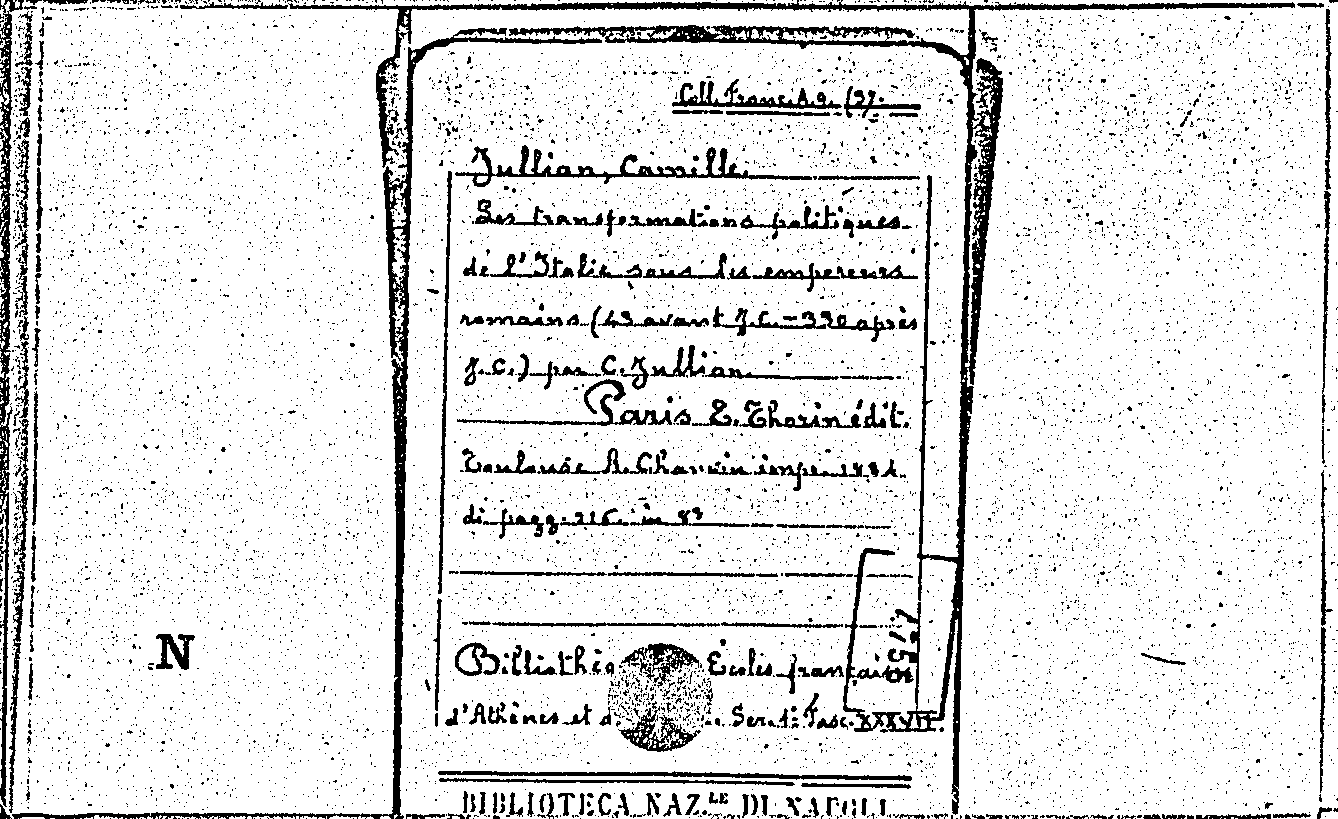 Coll. Franc. A. 9. (37.
Jullian, Camille.
Les transformations politiques
de l'Italie sous les empereurs
romains (43 avant J.C. - 330 après
J.C.) par C. Jullian.
Paris E. Thorin édit.
Toulouse A. Chauvin impr. 1884.
di pagg. 216. in 8º
N
Bibliothèq Écoles françaises
d'Athènes et d. Ser. 1ª Fasc. XXXVII.
BIBLIOTECA NAZ.LE DI NAPOLI